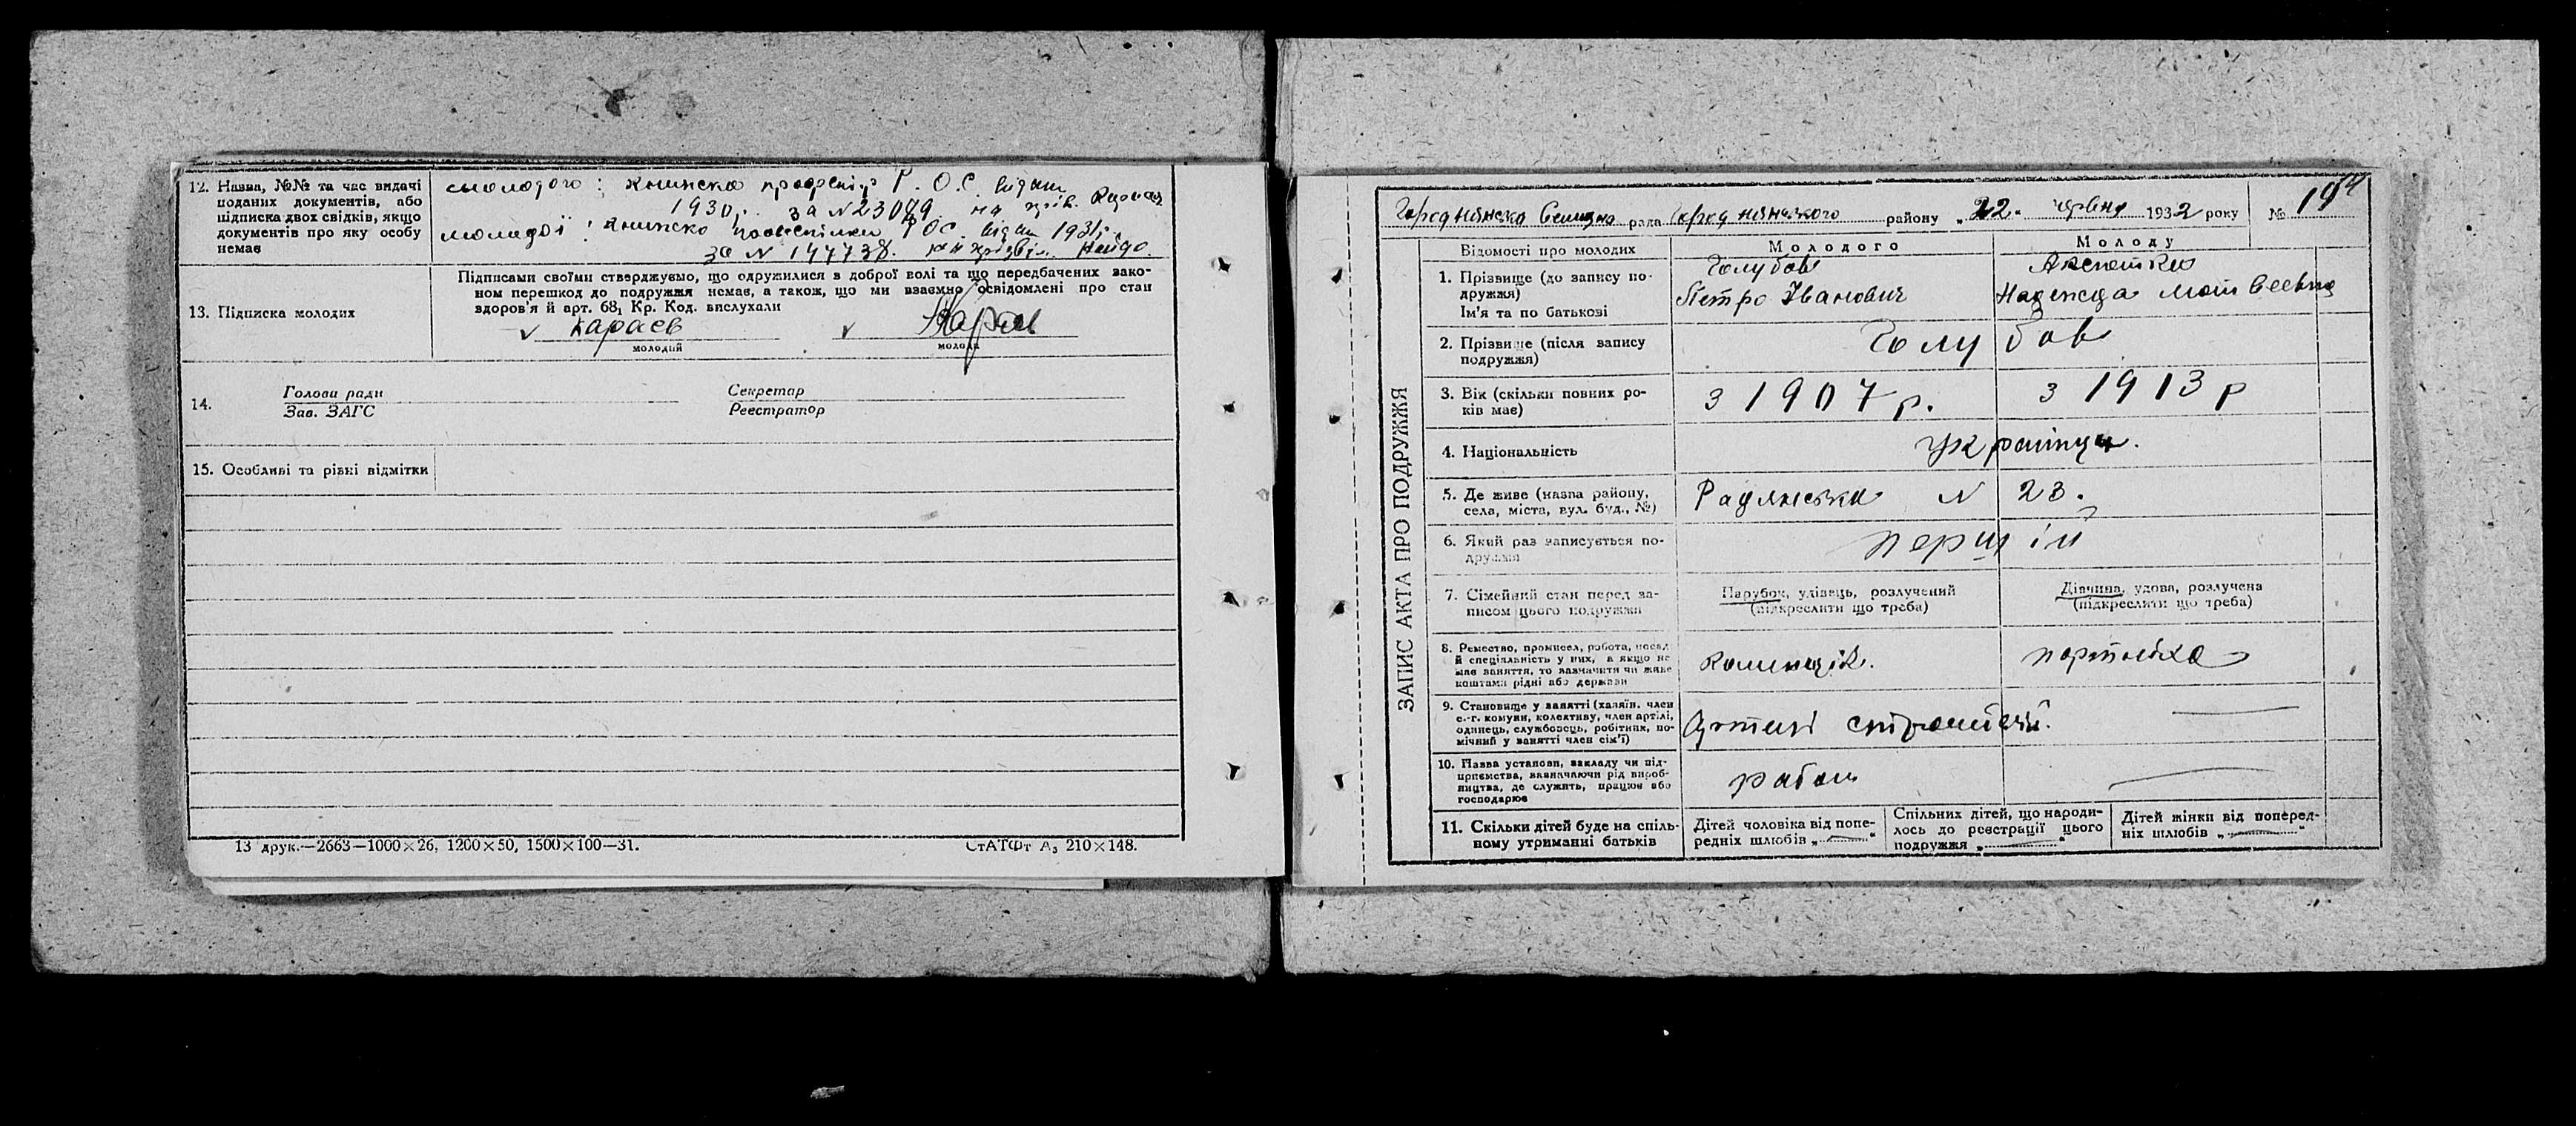 12. Назва, №№ та час видачі
поданих документів, або
підписка двох свідків, якщо
документів про яку особу
немає
молодого: книжка профспіл Р. О.С. видат
1930 р. за N 23099 на прів. Караєв
молодої: книжка профспілки РОС. видат 1931 р.
за N 147738. на прізвіщ. Найдо.
13. Підписка молодих
Підписами своїми стверджуємо, що одружилися в доброї волі та що передбачених зако-
ном перешкод до подружжя немає, а також, що ми взаємно освідомлені про стан
здоров'я й арт. 68₁ Кр. Код. вислухали
v Караєв v
молодий молода
14. Голова ради Секретар
Зав. ЗАГС Реєстратор
15. Особливі та рівні відмітки
13 друк.—2663—1000×26, 1200×50, 1500×100—31. СтАТФт А₅ 210×148.
ЗАПИС АКТА ПРО ПОДРУЖЖЯ
Городнянська Селищна рада Городнянського району „22" червня 1932 року № 19
Відомості про молодих Молодого Молоду
1. Прізвище (до запису по-
дружжя)
Ім'я та по батькові
Голубов
Петро Іванович
Надежда Матвеевна
2. Прізвище (після запису
подружжя)
Голубов
3. Вік (скільки повних ро-
ків має)
з 1907 р. з 1913 р
4. Національність
Українци.
5. Де живе (назва району,
села, міста, вул. буд., №)
Радянська N 23.
6. Який раз записується по-
дружжя
перший
7. Сімейний стан перед за-
писом цього подружжя
Парубок, удівець, розлучений
(підкреслити що треба)
Дівчина, удова, розлучена
(підкреслити що треба)
8. Ремество, промисел, робота, посад
й спеціальність у них, а якщо не
має заняття, то зазначити чи живе
коштами рідні або держави
портніха
9. Становище у занятті (хазяїн. член
с.-г. комуни, колективу, член артілі,
одинець, службовець, робітник, по-
мічний у занятті член сім'ї)
Артілі
10. Назва установи, закладу чи під-
приємства, зазначаючи рід вироб-
ництва, де служить, працює або
господарює
11. Скільки дітей буде на спіль-
ному утриманні батьків
Дітей чоловіка від попе-
редніх шлюбів „ — "
Спільних дітей, що народи-
лось до реєстрації цього
подружжя „ — "
Дітей жінки від поперед-
ніх шлюбів „ — "